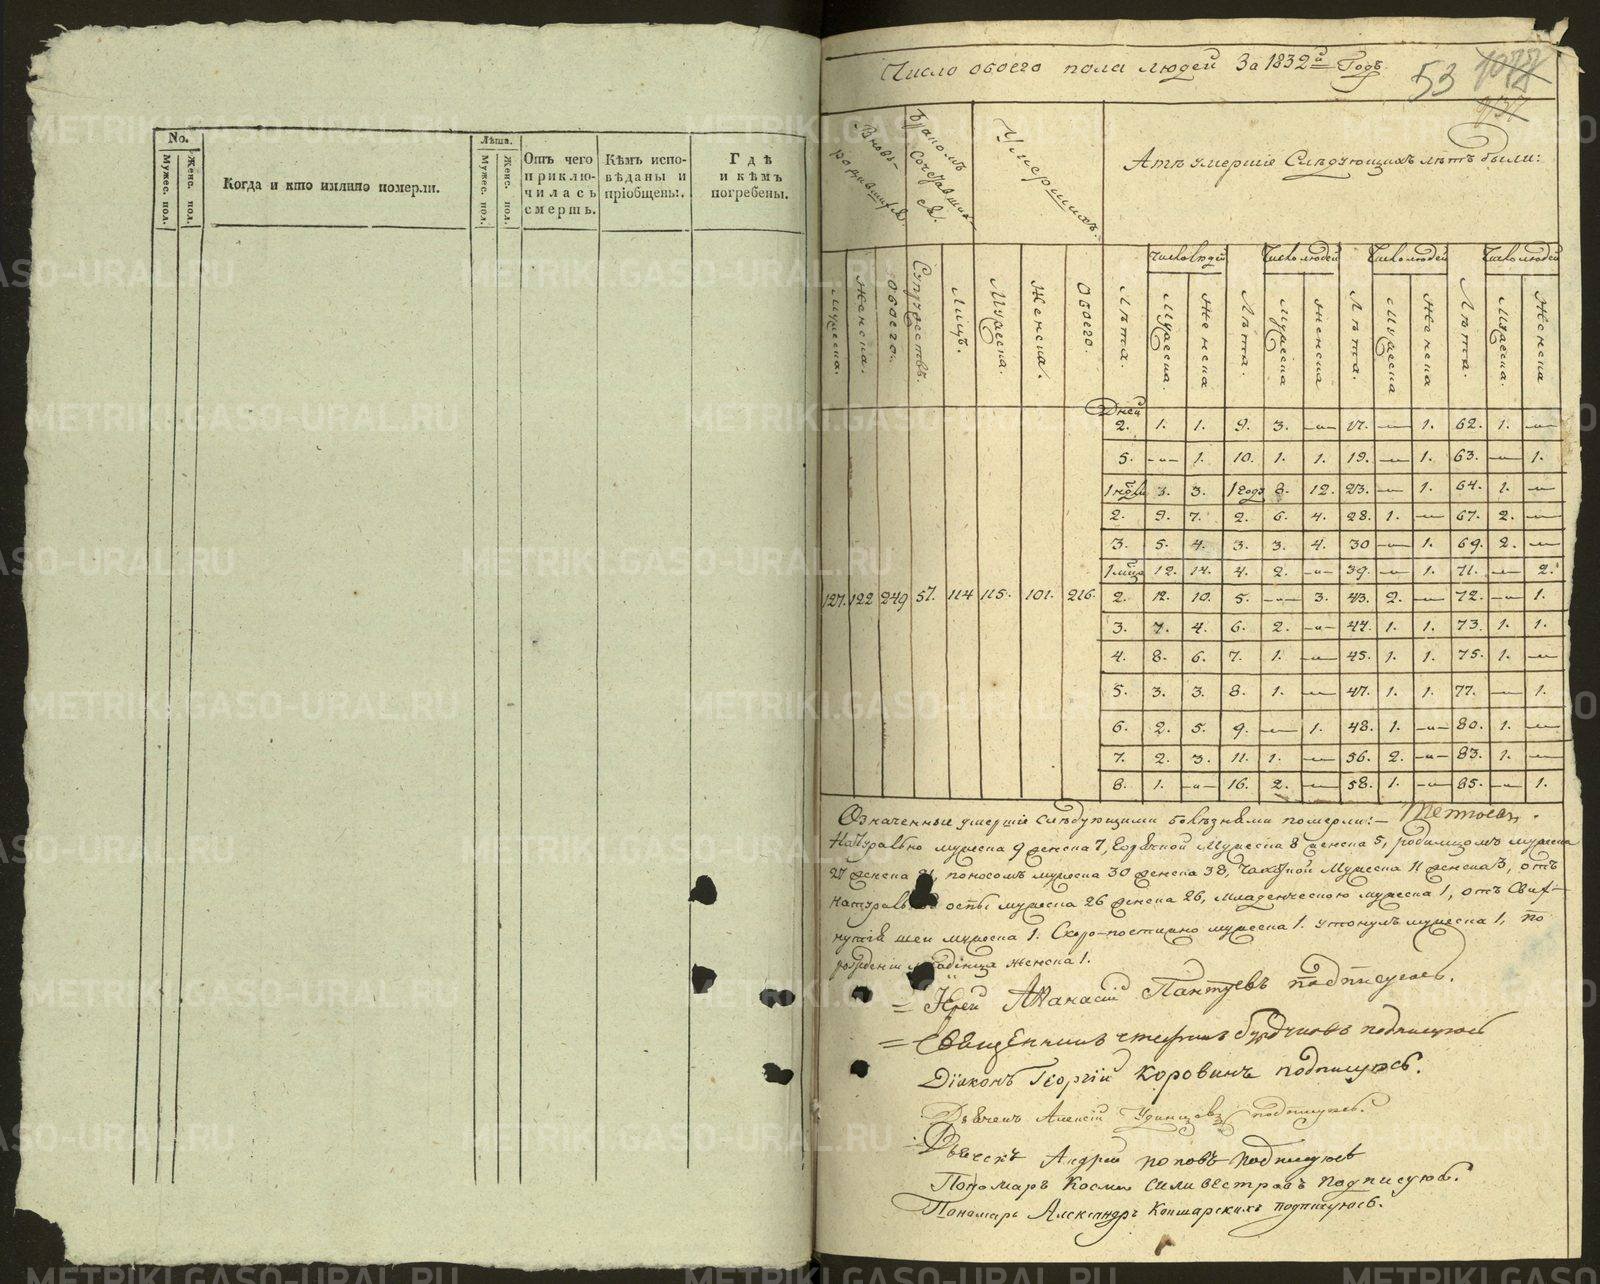 No.
Мужес. пол.
Женс. пол.
Когда и кто имянно померли.
Лѣта.
Мужес. пол.
Женс. пол.
Отъ чего приклю-чилась смерть.
Кѣмъ испо-вѣданы и пріобщены.
Гдѣ и кѣмъ погребены.
Число обоего пола людей За 1832й Годъ.
53
Вновь-родившихся
Бракомъ сочетавших-ся.
Умершихъ.
Атѣ умершіе Слѣдующихъ лѣтъ были:
Число людей Число людей Число людей Число людей
Мужеска. Женска. обоего. Супружествъ. Лицъ. Мужеска. Женска. Обоего. Лѣта. Мужеска. Женска Лѣта. Мужеска Женска Лѣта. Мужеска Женска Лѣта. Мужеска. Женска
Дней
2. 1. 1. 9. 3. —"— 17. —"— 1. 62. 1. —"—
5. —"— 1. 10. 1. 1. 19. —"— 1. 63. —"— 1.
3. 3. 1 годъ 8. 12. 23. —"— 1. 64. 1. —"—
2. 9. 7. 2. 6. 4. 28. 1. —"— 67. 2. —"—
3. 5. 4. 3. 3. 4. 30 —"— 1. 69. 2. —"—
12. 14. 4. 2. —"— 39. —"— 1. 71. —"— 2.
127. 122 249 57. 114 115. 101. 216. 2. 12. 10. 5. —"— 3. 43. 2. —"— 72. —"— 1.
3. 7. 4. 6. 2. —"— 44. 1. 1. 73. 1. 1.
4. 8. 6. 7. 1. —"— 45. 1. 1. 75. 1. —"—
5. 3. 3. 8. 1. —"— 47. 1. 1. 77. —"— 1.
6. 2. 5. 9. —"— 1. 48. 1. —"— 80. 1. —"—
7. 2. 3. 11. 1. —"— 56. 2. —"— 83. 1. —"—
8. 1. —"— 16. 2. —"— 58. 1. —"— 85. —"— 1.
Означенные умершіе слѣдующими болѣзнями померли:—
Натурально мужеска 9 женска 7, Горячкой Мужеска 8 женска 5, родимцомъ мужеска
27 женска 21, поносомъ мужеска 30 женска 38, Чахоткой Мужеска 11 женска 3, отъ
натуральной оспы мужеска 26 женска 26, младенческою мужеска 1, отъ Свих-
нутія шеи мужеска 1. Скоро-постижно мужеска 1. утонулъ мужеска 1, по
рожденіи младенца женска 1.
= Іерей Аѳанасій Пантуевъ подписуюсь.
= Священникъ Стефанъ Бурдуковъ подписуюсь
Діаконъ Георгій Коровинъ подписуюсь.
Дьячекъ Алексій Удинцевъ подписуюсь.
Дьячекъ Андрей Поповъ подписуюсь
Пономарь Косма Силивестровъ подписуюсь.
Пономарь Александръ Кокшарскихъ подписуюсь.
METRIKI.GASO-URAL.RU